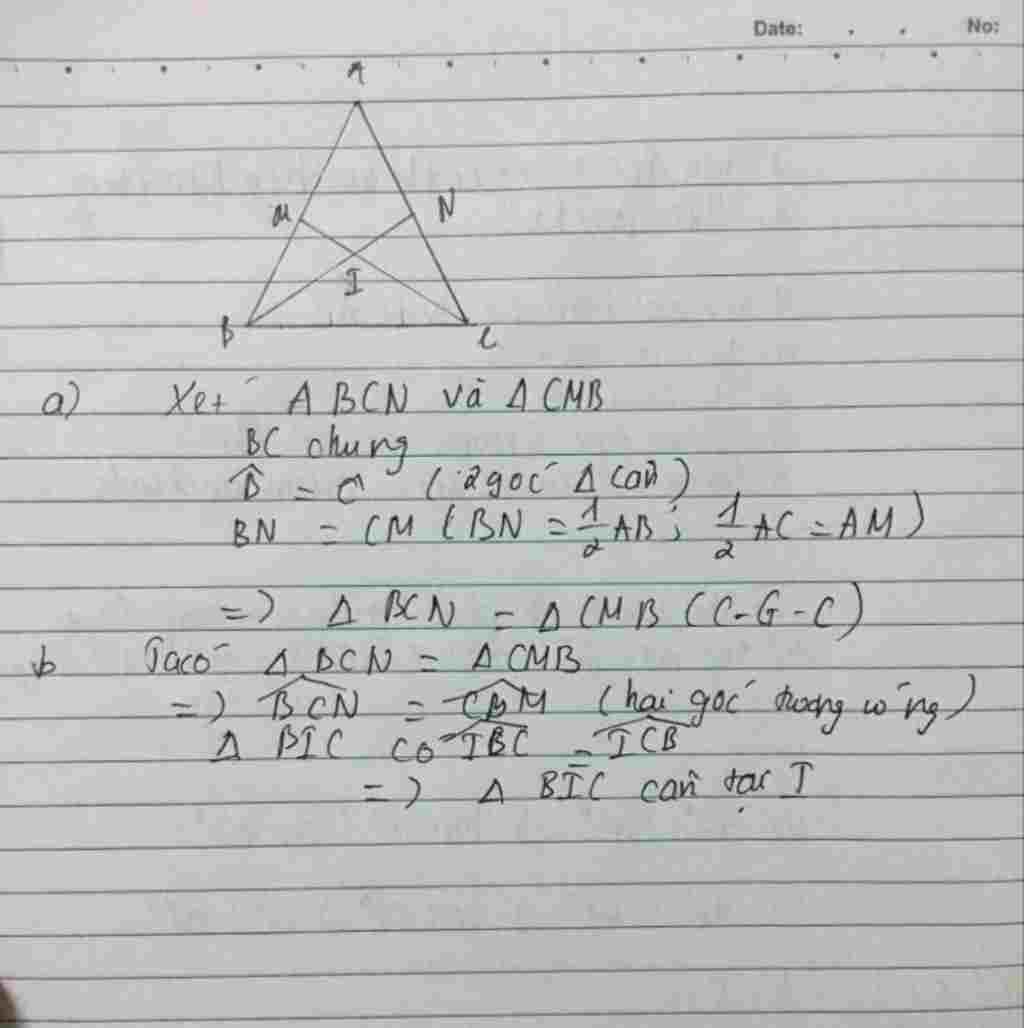 Date: . . No:
A
M N
I
B C
a) Xét Δ BCN và Δ CMB
BC chung
B̂ = Ĉ (2 góc Δ cân)
BN = CM (BN = 1/2 AB; 1/2 AC = AM)
=> Δ BCN = Δ CMB (C-G-C)
b Ta có Δ BCN = Δ CMB
=> BCN = CBM (hai góc tương ứng)
Δ BIC có IBC = ICB
=> Δ BIC cân tại I